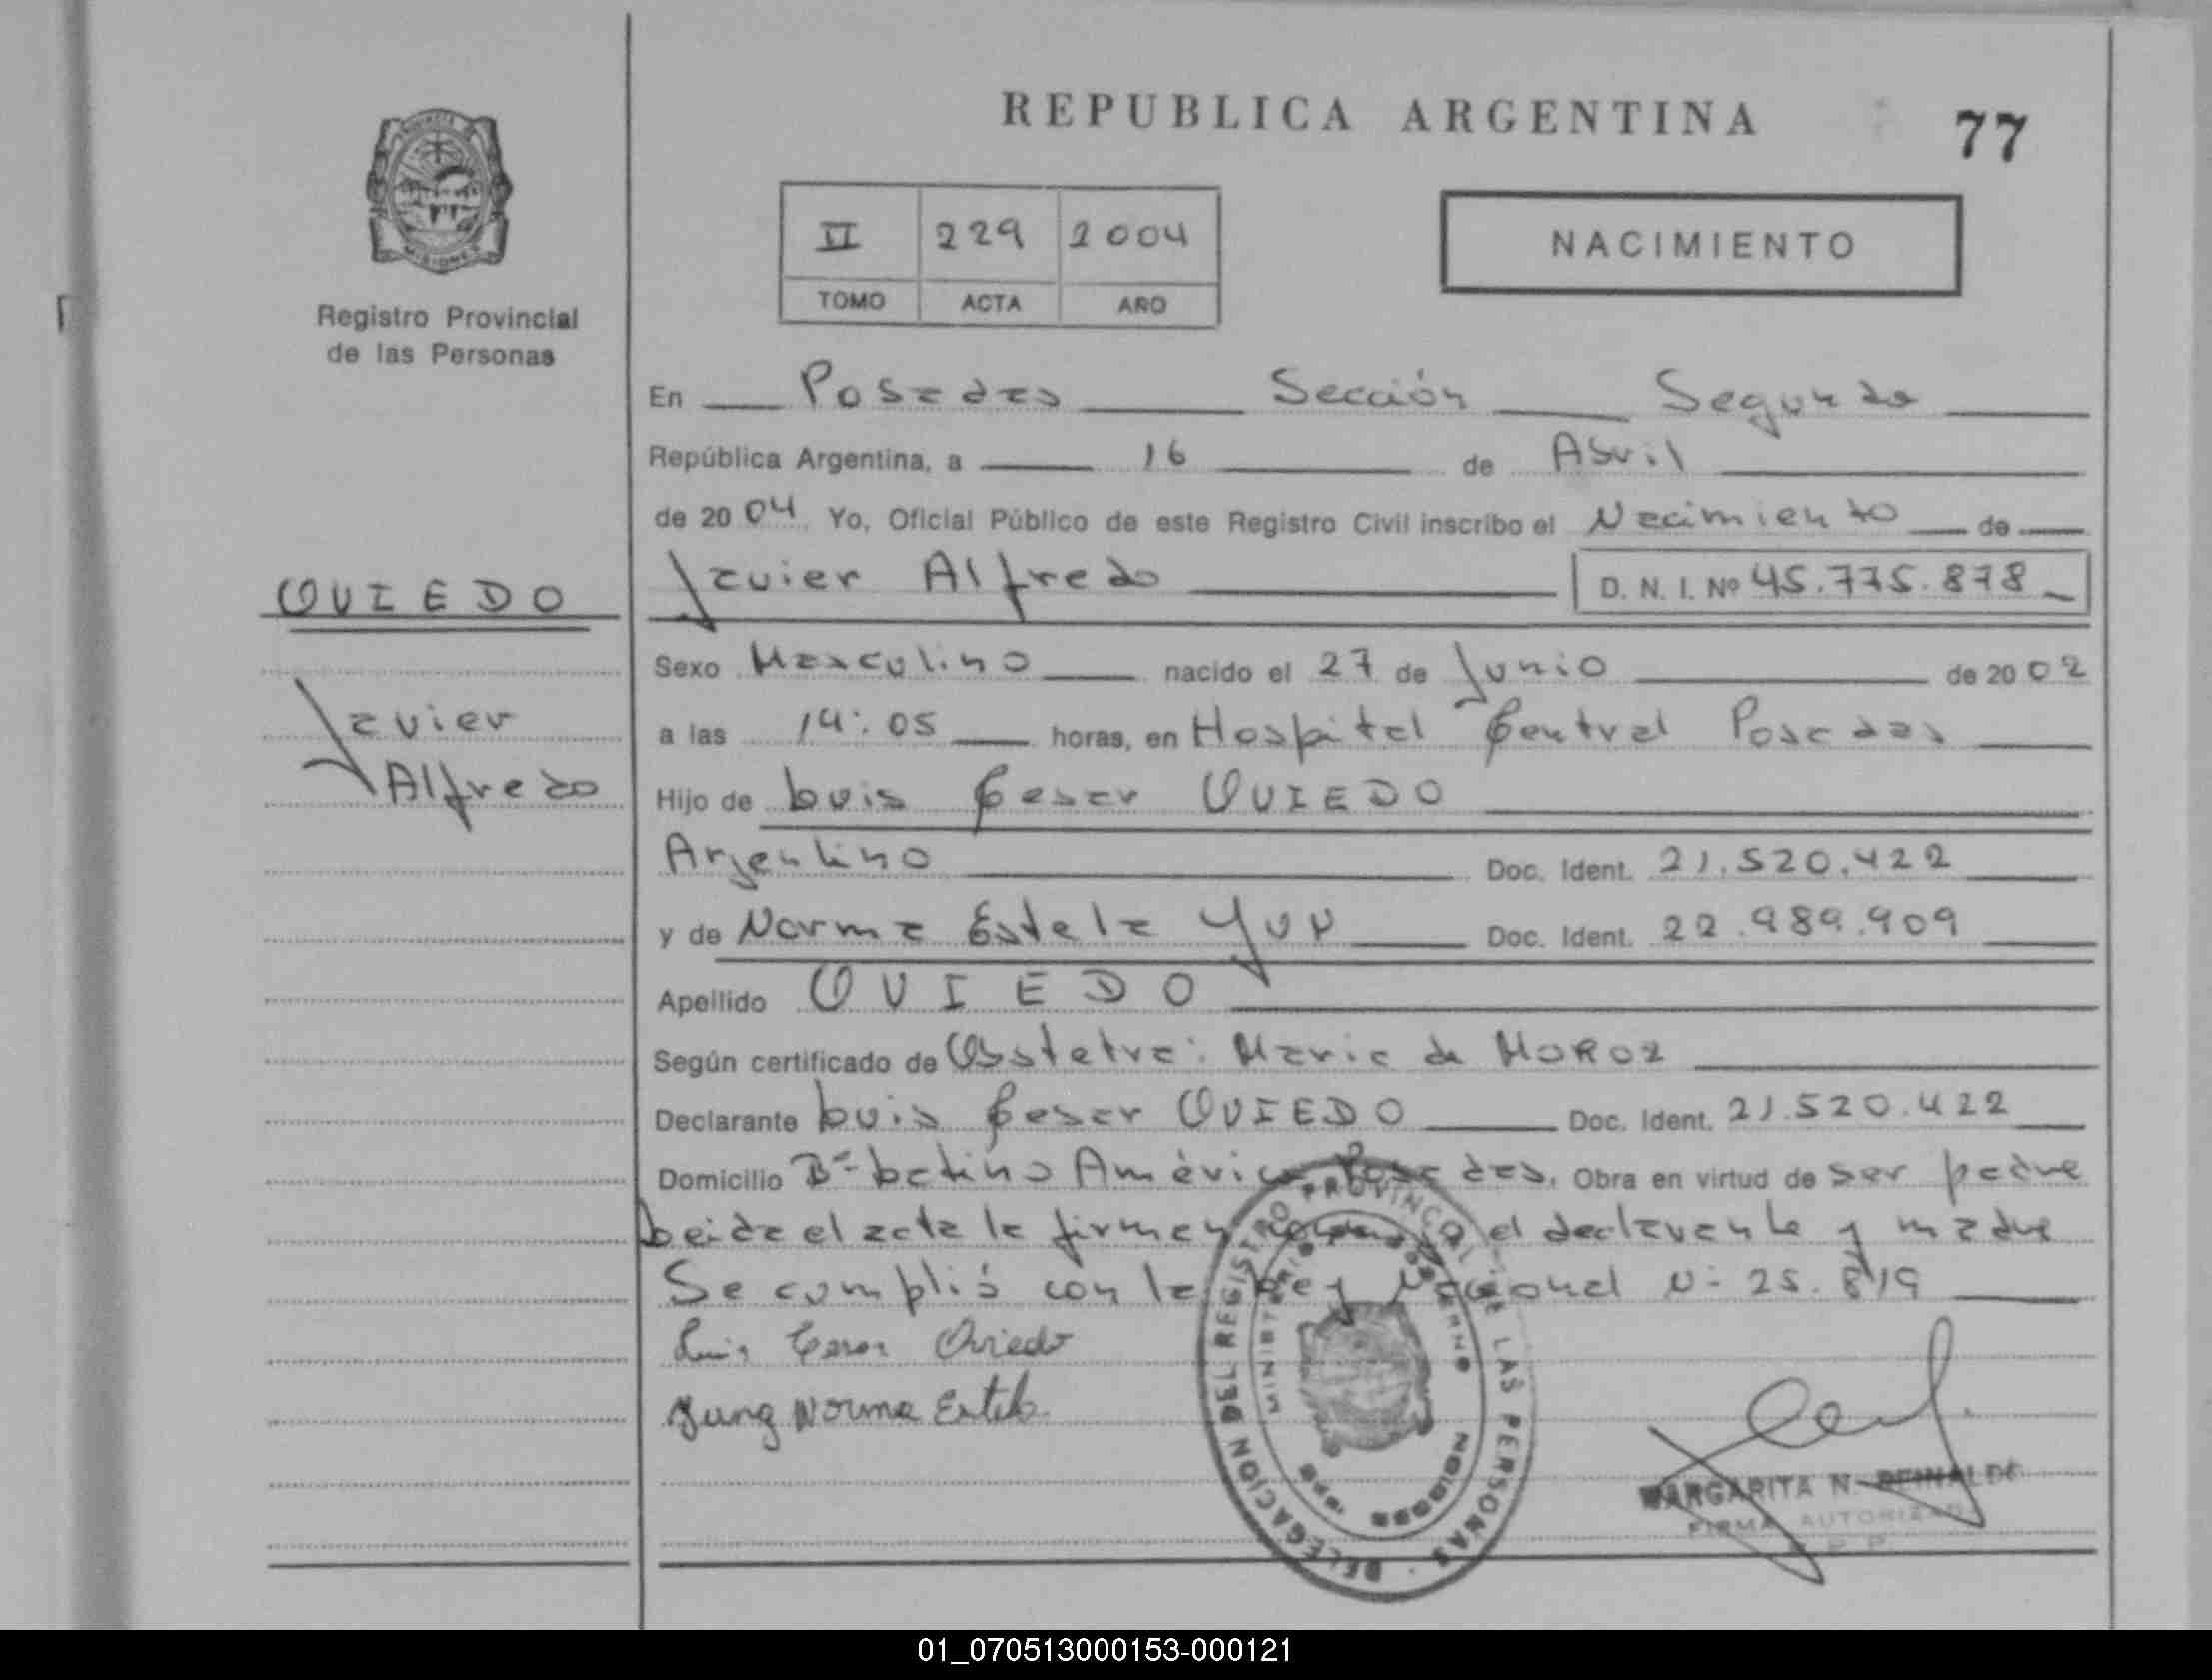 REPUBLICA ARGENTINA
77
II 229 2004
TOMO ACTA AÑO
NACIMIENTO
Registro Provincial
de las Personas
En Posadas Sección Segunda
República Argentina, a 16 de Abril
de 2004 Yo, Oficial Público de este Registro Civil inscribo el Nacimiento de
OVIEDO
Javier Alfredo D. N. I. Nº 45.775.878
Sexo Masculino nacido el 27 de Junio de 2002
Javier
a las 14:05 horas, en Hospital Central Posadas
Alfredo
Hijo de Luis Cesar OVIEDO
Argentino Doc. Ident. 21.520.422
y de Norma Estela Doc. Ident. 22.989.909
Apellido OVIEDO
Según certificado de Obstetra: Maria de MOROZ
Declarante Luis Cesar OVIEDO Doc. Ident. 21.520.422
Domicilio Bº Latino América Posadas. Obra en virtud de ser padre
Leida el acta la firman el declarante y madre
Se cumplió con la Ley Nacional Nº 25.819
Luis Cesar Oviedo
Jung Norma Estela
DELEGACION DEL REGISTRO PROVINCIAL DE LAS PERSONAS
MINISTERIO DE GOBIERNO
MARGARITA N. REINALDI
FIRMA AUTORIZADA
01_070513000153-000121